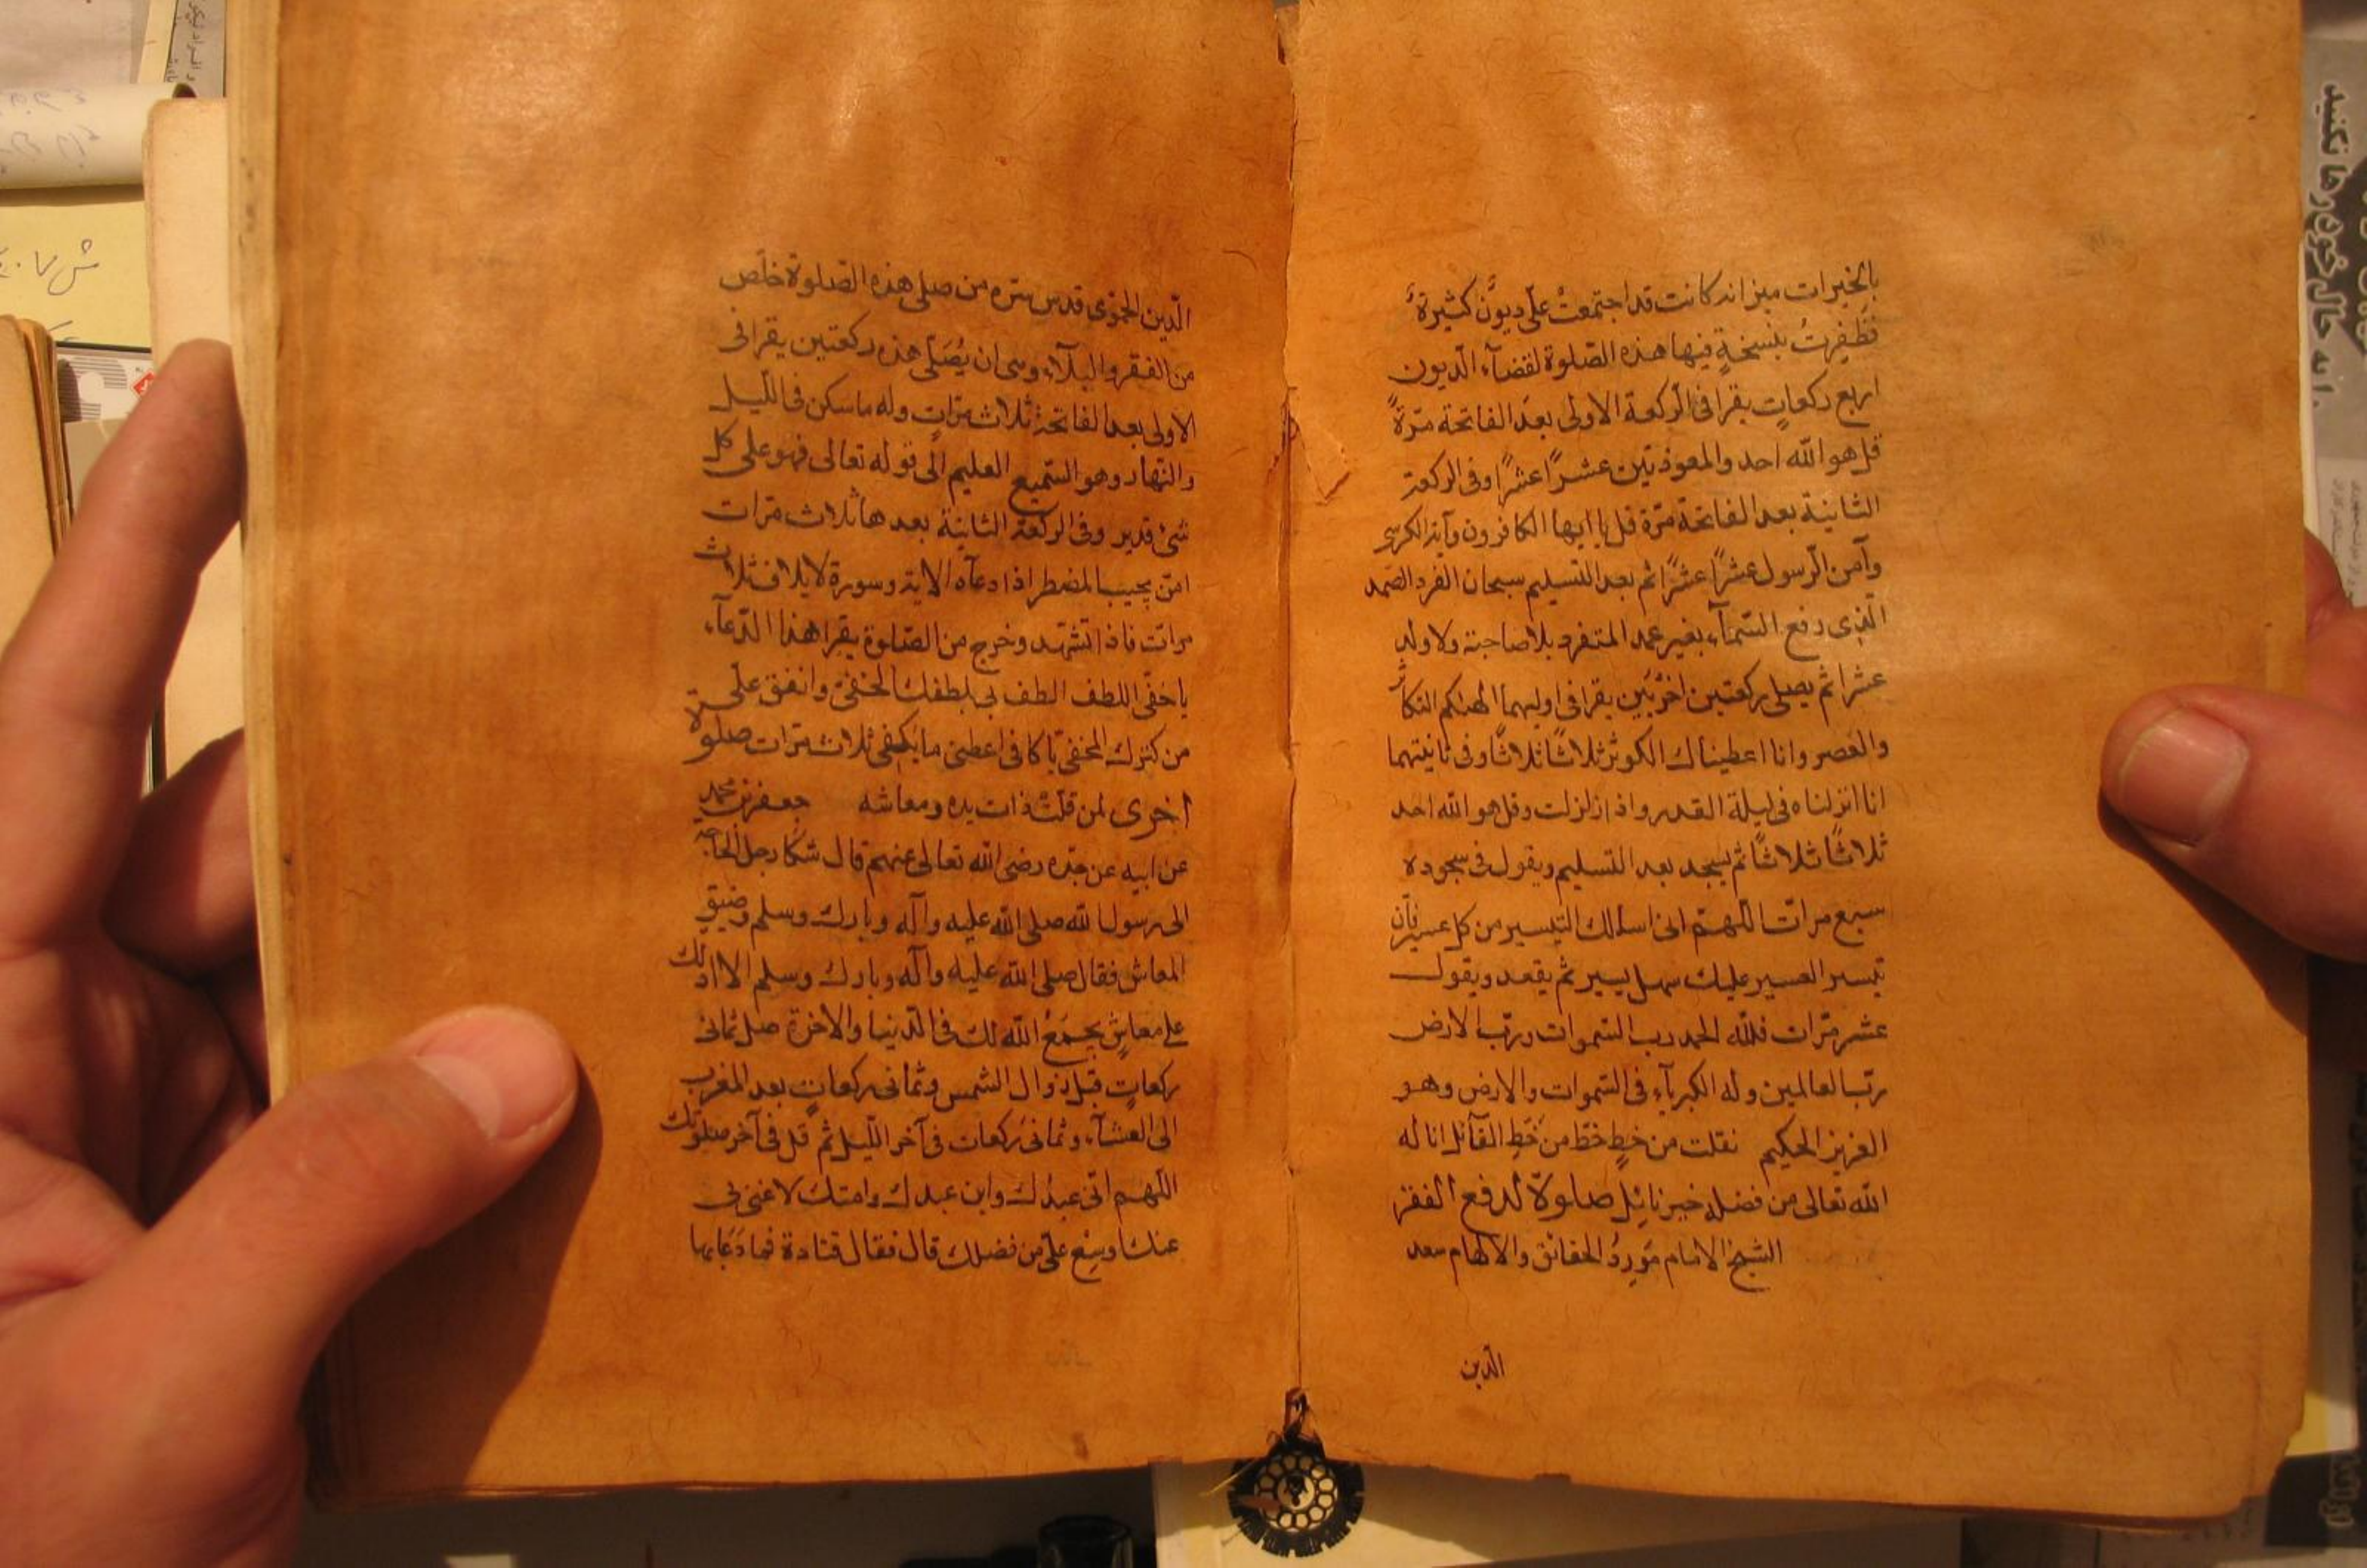 بالخيرات ميزانه كانت قد اجتمعتْ علّى ديوُن كثيرةُ
فظفِرتُ بنسخةٍ فيها هذه الصّلوة لقضآء الدّيون
اربع ركعاتٍ يقرا فى الركعة الاولى بعد الفاتحة مرّةً
قل هو الله احد والمعوذتين عشرًا عشرًا وفى الركعة
الثانية بعد الفاتحة مرّة قل يا ايها الكافرون وآية الكرسى
وآمن الرّسول عشرًا عشرًا ثم بعد التسليم سبحان الفرد الصّمد
الّذى رفع السّمآء بغير عمد المتفرد بلا صاحبة ولا ولد
عشرا ثم يصلى ركعتين اخريَين يقرا فى اوليهما الهٰىكم التكاثر
والعصر وانا اعطيناك الكوثر ثلاثًا ثلاثًا وفى ثانيتهما
انا انزلناه فى ليلة القدر واذا زلزلت وقل هو الله احد
ثلاثًا ثلاثًا ثم يسجد بعد التسليم ويقول فى سجوده
سبع مرات اللّهمّ انى اسالك التيسير من كل عسير فانّ
تيسير العسير عليك سهل يسير ثم يقعد ويقول
عشر مرّات فللّه الحمد رب السّموات وربّ الارض
ربّ العالمين وله الكبريآء فى السّموات والارض وهو
العزيز الحكيم نقلت من خطٍ خطّ من خَطِ القآئل انا له
الله تعالى من فضله خير نائِلٍ صلوة لدفع الفقر
الشيخ الامام مَورِدُ الحقائق والالهام سعد
الدّين
الدّين الحموّى قدس سرّه من صلى هذه الصّلوة خلّص
من الفقر والبلآء وهى ان يُصَلّى هذه ركعتين يقرا فى
الاولى بعد الفاتحة ثلاث مرّاتٍ وله ما سكن فى اللّيل
والنّهار وهو السّميع العليم الى قوله تعالى فهو على كل
شئ قدير وفى الركعة الثانية بعدها ثلاث مرّات
امّن يجيب المضطر اذا دعآه الاية وسورة لايلاف ثلاث
مرات فاذا تشهّد وخرج من الصّلوة يقرا هذا الدّعآء
يا خفىّ اللطف الطف بى بلطفك الخفىّ وانفق علّى
من كنزك المخفى يا كافى اعطنى ما يكفى ثلاث مرّات صلوة
اخرى لمن قلّتْ ذات يده ومعاشه جعفر بن محمد
عن ابيه عن جدّه رضى الله تعالى عنهم قال شكا رجل الحاجة
الى رسول الله صلى الله عليه وآله وبارك وسلم وضيق
المعاش فقال صلى الله عليه وآله وبارك وسلم الا ادلك
على معاشٍ يجمَعُ اللّه لك فى الدّنيا والاخرة صل ثمانى
ركعاتٍ قبل زوال الشمس وثمانى ركعاتٍ بعد المغرب
الى العشآء وثمانى ركعات فى آخر اللّيل ثم قل فى آخر صلوتك
اللّهم انّى عبدُك وابن عبدك وامتك لا غنى بى
عنك اوسِع علّى من فضلك قال فقال قتادة فما دَعَا بها